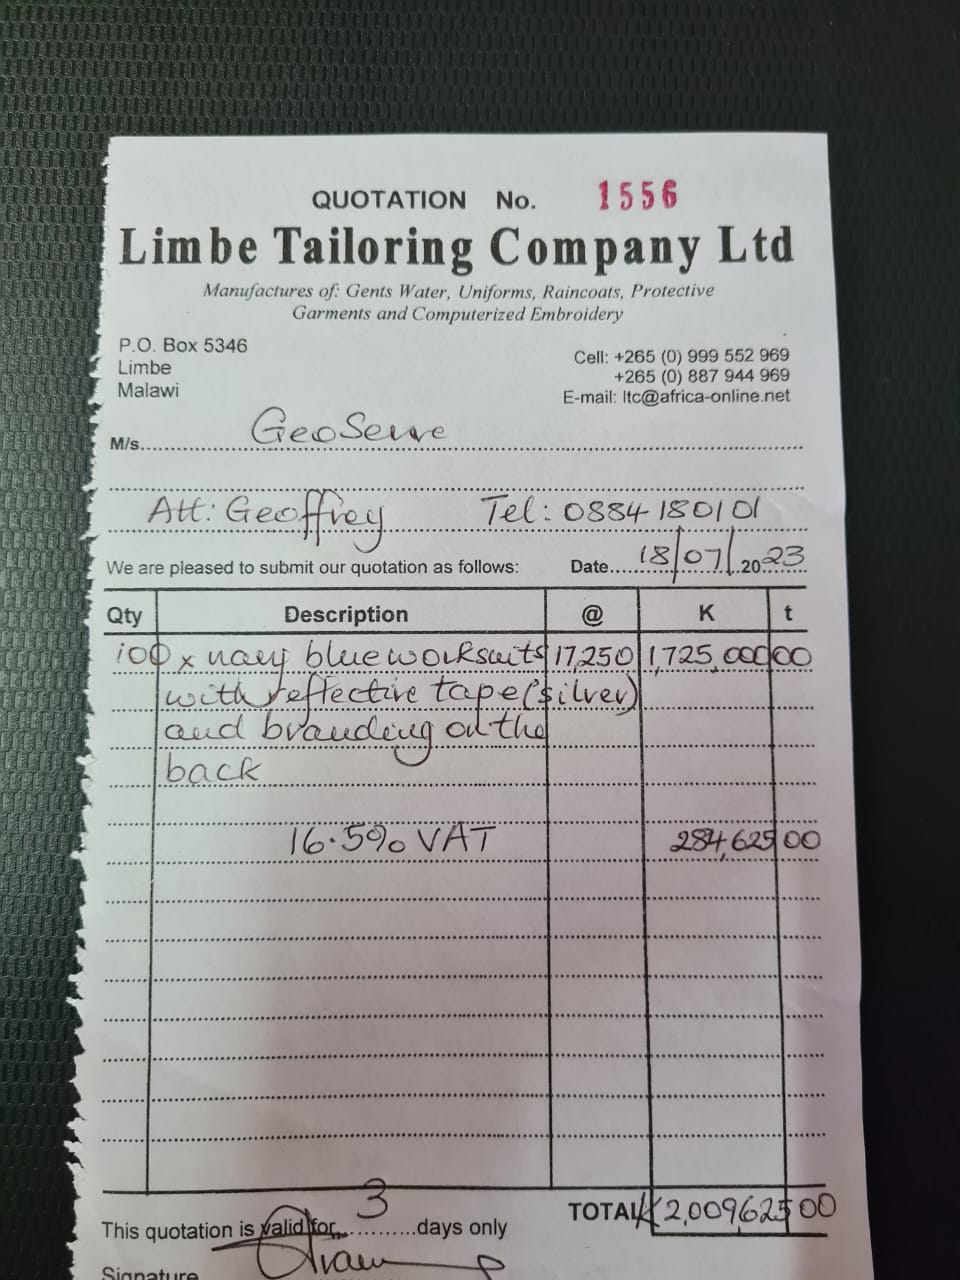 QUOTATION No. 1556
Limbe Tailoring Company Ltd
Manufactures of: Gents Water, Uniforms, Raincoats, Protective
Garments and Computerized Embroidery
P.O. Box 5346
Limbe
Malawi
Cell: +265 (0) 999 552 969
+265 (0) 887 944 969
E-mail: ltc@africa-online.net
M/s. GeoServe
Att: Geoffrey Tel: 0884 180101
We are pleased to submit our quotation as follows: Date 18/07/2023
Qty Description @ K t
100 x navy blue worksuits 17,250 1,725,000 00
with reflective tape (silver)
and branding on the
back
16.5% VAT 284,625 00
TOTAL K2,009,625 00
This quotation is valid for 3 days only
Signature